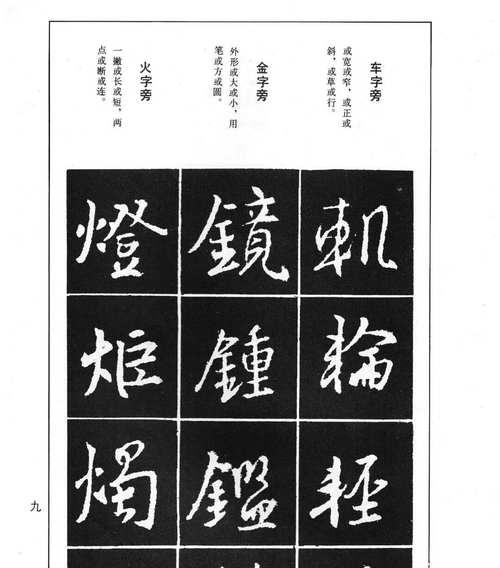 车字旁
或宽或窄，或正或
斜，或草或行。
金字旁
外形或大或小，用
笔或方或圆。
火字旁
一撇或长或短，两
点或断或连。
軏
輪
輕
鏡
鍾
鑑
燈
炬
燭
九